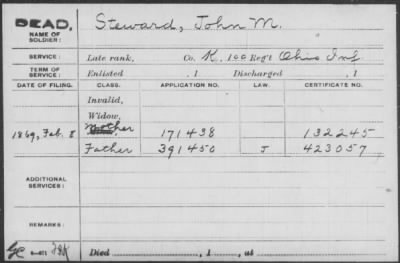 DEAD,
NAME OF SOLDIER: Steward, John M.
SERVICE: Late rank, Co. K, 100 Reg't Ohio Inf
TERM OF SERVICE: Enlisted , 1 Discharged , 1
DATE OF FILING. CLASS. APPLICATION NO. LAW. CERTIFICATE NO.
Invalid,
Widow,
1869, Feb. 8 Mother 171438 132245
Father 391450 J 423057
ADDITIONAL SERVICES:
REMARKS:
Died , 1 , at